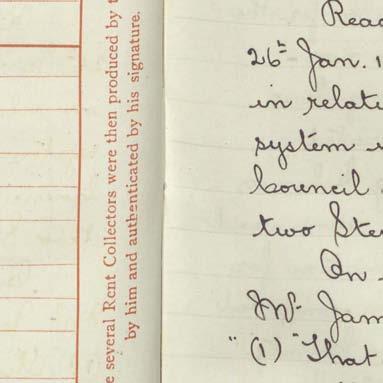 e several Rent Collectors were then produced by t
by him and authenticated by his signature.
Read
26th Jan. 1
in relat
system
Council
two Ste
On
Mr. Jam
"(1) "That